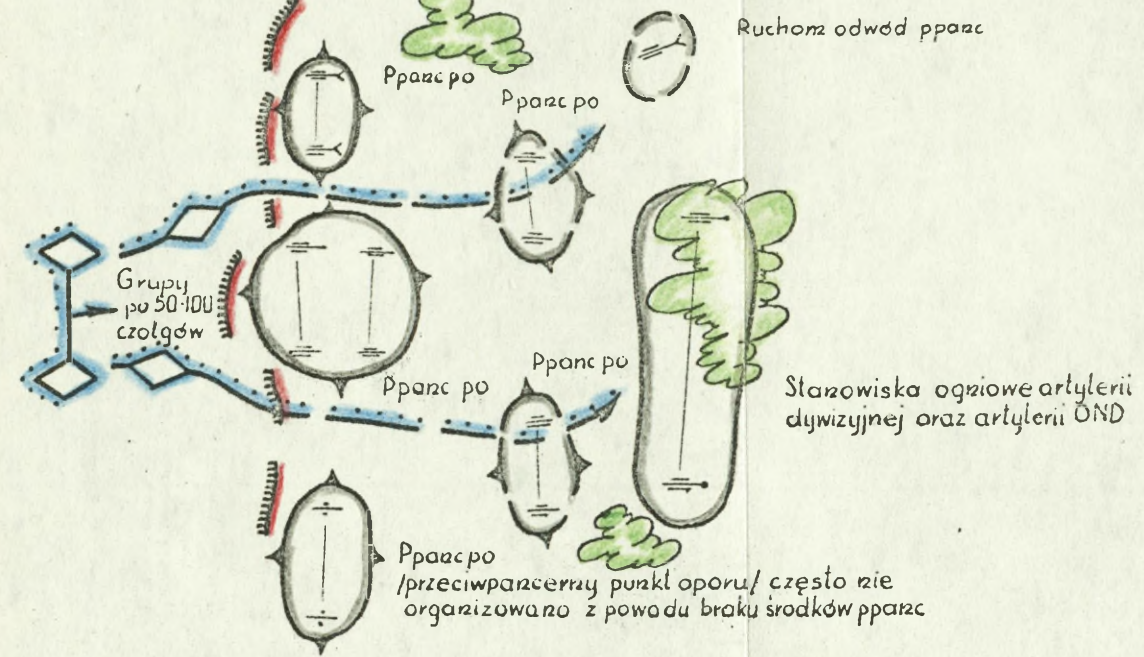 Ruchom odwód ppanc
Ppanc po
Ppanc po
Grupy
po 50-100
czołgów
Ppanc po
Ppanc po
Stanowiska ogniowe artylerii
dywizyjnej oraz artylerii OND
Ppanc po
/przeciwpancerny punkt oporu/ często nie
organizowano z powodu braku środków ppanc